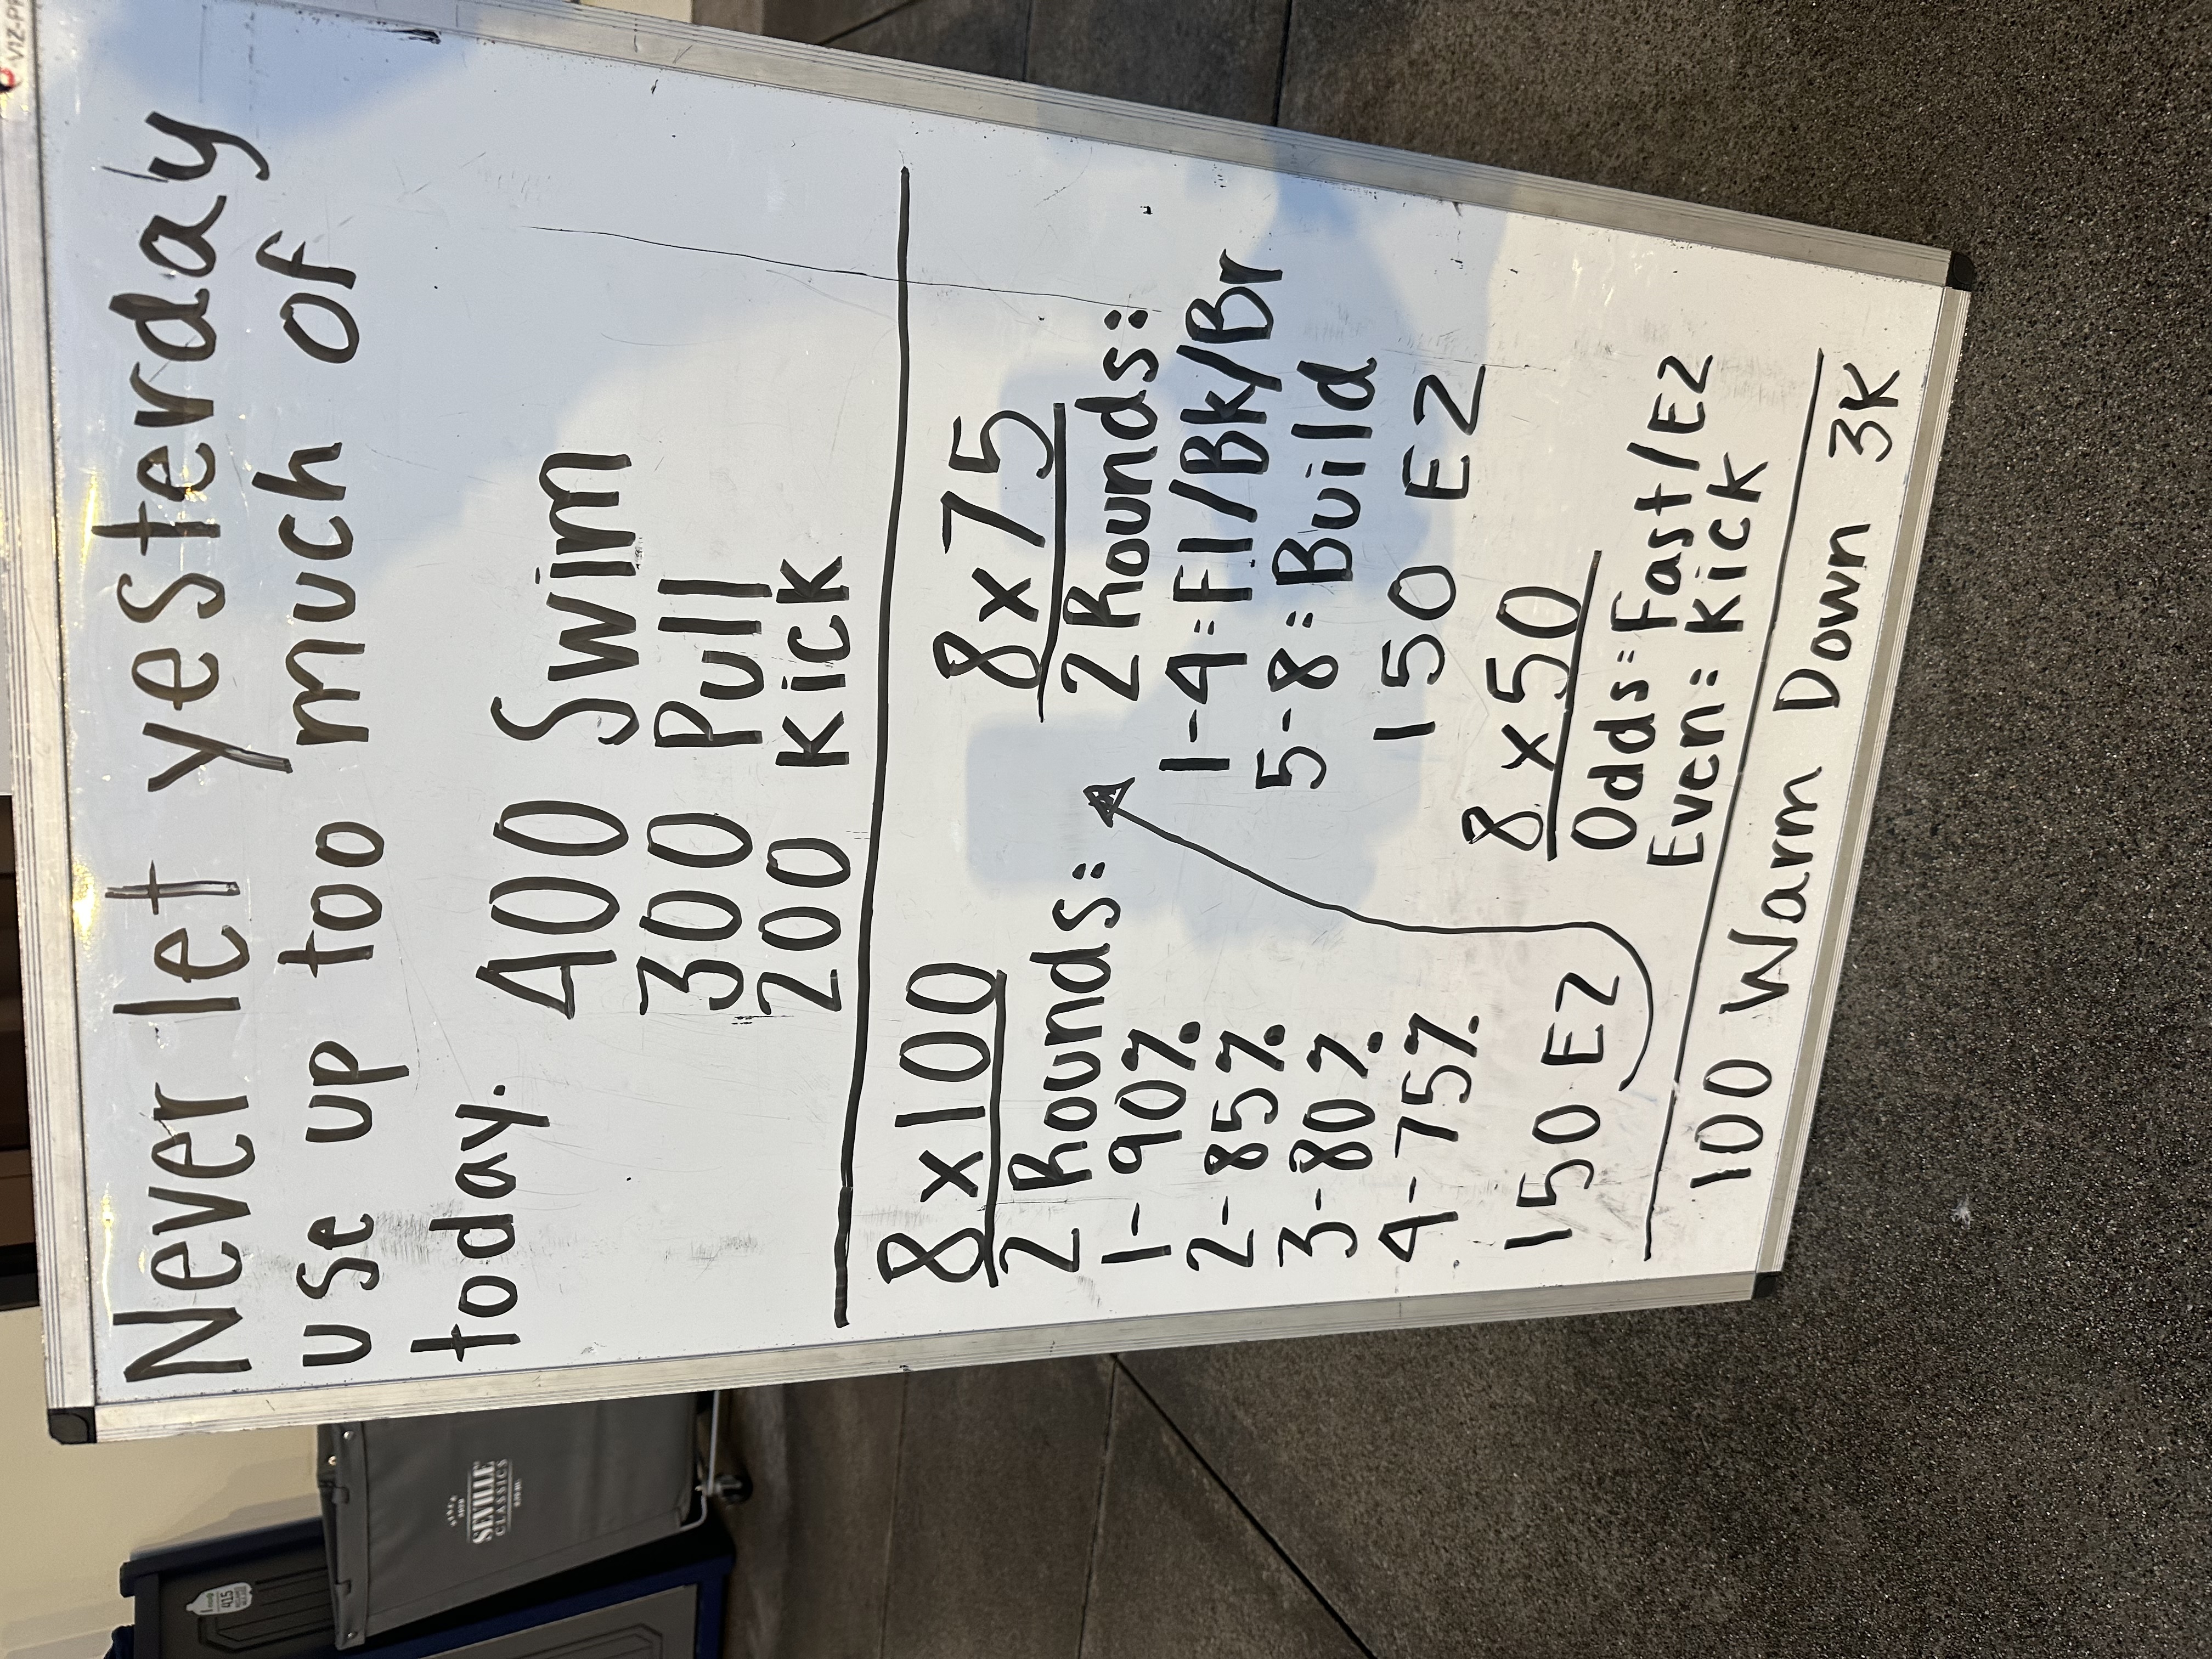 Never let yesterday
use up too much of
today.
400 Swim
300 Pull
200 Kick
8x100
2 Rounds:
1-90%
2-85%
3-80%
4-75%
150 EZ
8x75
2 Rounds:
1-4=Fl/Bk/Br
5-8=Build
150 EZ
8x50
Odds=Fast/EZ
Even=Kick
100 Warm Down 3K
SEVILLE
CLASSICS